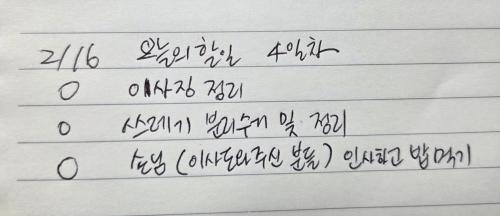 2/16 오늘의 할일 4일차
O 이사장 정리
O 쓰레기 분리수거 및 정리
O 손님 (이사도와주신 분들) 인사하고 밥먹기